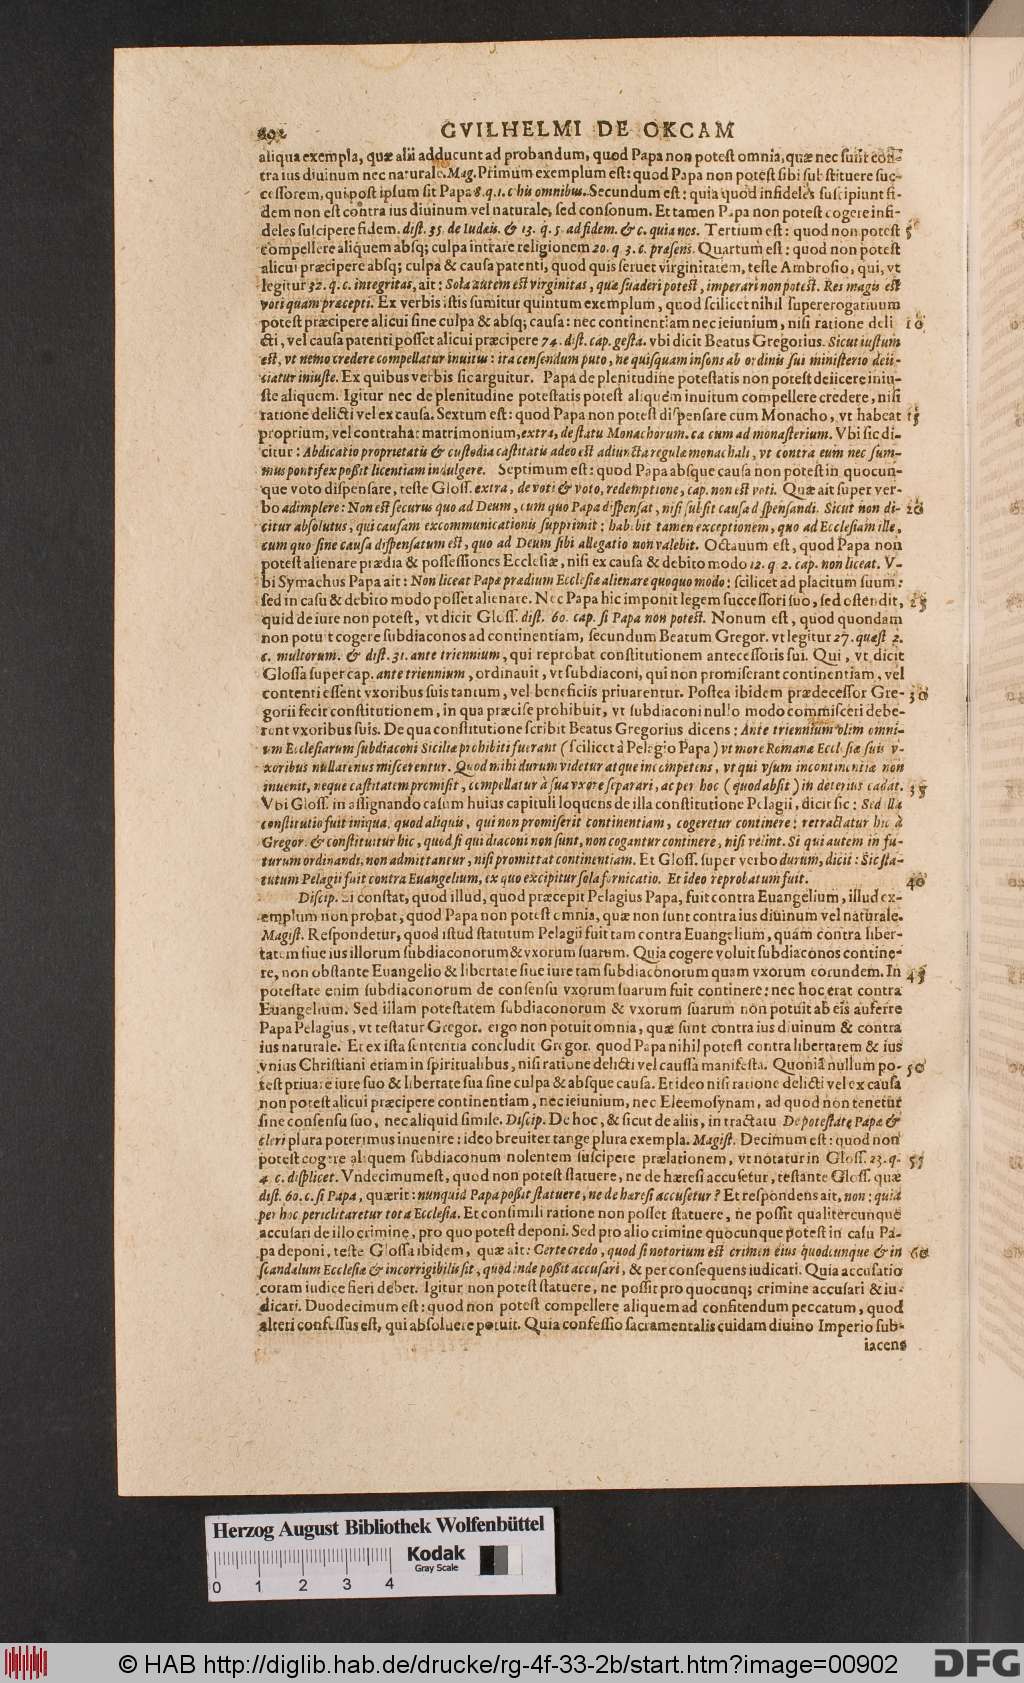 892 GVILHELMI DE OKCAM
aliqua exempla, quæ alii adducunt ad probandum, quod Papa non potest omnia, quæ nec sunt con-
tra ius diuinum nec naturale. Mag. Primum exemplum est: quod Papa non potest sibi substituere suc-
cessorem, qui post ipsum sit Papa 8. q. 1. c his omnibus. Secundum est: quia quod infideles suscipiunt fi-
dem non est contra ius diuinum vel naturale, sed consonum. Et tamen Papa non potest cogere infi-
deles suscipere fidem. dist. 35. de Iudæis. & 13. q. 5. ad fidem. & c. quia nos. Tertium est: quod non potest 5
compellere aliquem absq; culpa intrare religionem 20. q 3. c. præsens. Quartum est: quod non potest
alicui præcipere absq; culpa & causa patenti, quod quis seruet virginitatem, teste Ambrosio, qui, vt
legitur 32. q. c. integritas, ait: Sola autem est virginitas, quæ suaderi potest, imperari non potest. Res magis est
voti quam præcepti. Ex verbis istis sumitur quintum exemplum, quod scilicet nihil supererogatiuum
potest præcipere alicui sine culpa & absq; causa: nec continentiam nec ieiunium, nisi ratione deli 10
cti, vel causa patenti posset alicui præcipere 74. dist. cap. gesta. vbi dicit Beatus Gregorius. Sicut iustum
est, vt nemo credere compellatur inuitus: ita censendum puto, ne quisquam insons ab ordinis sui ministerio deii-
ciatur iniuste. Ex quibus verbis sic arguitur. Papa de plenitudine potestatis non potest deiicere iniu-
ste aliquem. Igitur nec de plenitudine potestatis potest aliquem inuitum compellere credere, nisi
ratione delicti vel ex causa. Sextum est: quod Papa non potest dispensare cum Monacho, vt habeat 15
proprium, vel contrahat matrimonium, extra, de statu Monachorum. ca cum ad monasterium. Vbi sic di-
citur: Abdicatio proprietatis & custodia castitatis adeo est adiuncta regulæ monachali, vt contra eum nec sum-
mus pontifex possit licentiam indulgere. Septimum est: quod Papa absque causa non potest in quocun-
que voto dispensare, teste Gloss. extra, de voti & voto, redemptione, cap. non est voti. Quæ ait super ver-
bo adimplere: Non est securus quo ad Deum, cum quo Papa dispensat, nisi subsit causa dispensandi. Sicut non di- 20
citur absolutus, qui causam excommunicationis supprimit: habebit tamen exceptionem, quo ad Ecclesiam ille,
cum quo sine causa dispensatum est, quo ad Deum sibi allegatio non valebit. Octauum est, quod Papa non
potest alienare prædia & possessiones Ecclesiæ, nisi ex causa & debito modo 12. q. 2. cap. non liceat. V-
bi Symachus Papa ait: Non liceat Papæ prædium Ecclesiæ alienare quoquo modo: scilicet ad placitum suum:
sed in casu & debito modo posset alienare. Nec Papa hic imponit legem successori suo, sed ostendit, 25
quid de iure non potest, vt dicit Gloss. dist. 60. cap. si Papa non potest. Nonum est, quod quondam
non potuit cogere subdiaconos ad continentiam, secundum Beatum Gregor. vt legitur 27. quæst 2.
c. multorum. & dist. 31. ante triennium, qui reprobat constitutionem antecessoris sui. Qui, vt dicit
Glossa super cap. ante triennium, ordinauit, vt subdiaconi, qui non promiserant continentiam, vel
contenti essent vxoribus suis tantum, vel beneficiis priuarentur. Postea ibidem prædecessor Gre- 30
gorii fecit constitutionem, in qua præcise prohibuit, vt subdiaconi nullo modo commisceri debe-
rent vxoribus suis. De qua constitutione scribit Beatus Gregorius dicens: Ante triennium olim omni-
um Ecclesiarum subdiaconi Siciliæ prohibiti fuerant (scilicet à Pelagio Papa) vt more Romanæ Ecclesiæ suis v-
xoribus nullatenus miscerentur. Quod mihi durum videtur atque incompetens, vt qui vsum incontinentiæ non
inuenit, neque castitatem promisit, compellatur à sua vxore separari, ac per hoc (quod absit) in deterius cadat. 35
Vbi Gloss. in assignando casum huius capituli loquens de illa constitutione Pelagii, dicit sic: Sed illa
constitutio fuit iniqua, quod aliquis, qui non promiserit continentiam, cogeretur continere: retractatur hic à
Gregor. & constituitur hic, quod si qui diaconi non sunt, non cogantur continere, nisi velint. Si qui autem in fu-
turum ordinandi, non admittantur, nisi promittat continentiam. Et Gloss. super verbo durum, dicit: Sic sta-
tutum Pelagii fuit contra Euangelium, ex quo excipitur sola fornicatio. Et ideo reprobatum fuit. 40
Discip. Si constat, quod illud, quod præcepit Pelagius Papa, fuit contra Euangelium, illud ex-
emplum non probat, quod Papa non potest omnia, quæ non sunt contra ius diuinum vel naturale.
Magist. Respondetur, quod istud statutum Pelagii fuit tam contra Euangelium, quàm contra liber-
tatem siue ius illorum subdiaconorum & vxorum suarum. Quia cogere voluit subdiaconos contine-
re, non obstante Euangelio & libertate siue iure tam subdiaconorum quam vxorum eorundem. In 45
potestate enim subdiaconorum de consensu vxorum suarum fuit continere: nec hoc erat contra
Euangelium. Sed illam potestatem subdiaconorum & vxorum suarum non potuit ab eis auferre
Papa Pelagius, vt testatur Gregor. ergo non potuit omnia, quæ sunt contra ius diuinum & contra
ius naturale. Et ex ista sententia concludit Gregor. quod Papa nihil potest contra libertatem & ius
vnius Christiani etiam in spiritualibus, nisi ratione delicti vel caussa manifesta. Quoniã nullum po- 50
test priuare iure suo & libertate sua sine culpa & absque causa. Et ideo nisi ratione delicti vel ex causa
non potest alicui præcipere continentiam, nec ieiunium, nec Eleemosynam, ad quod non tenetur
sine consensu suo, nec aliquid simile. Discip. De hoc, & sicut de aliis, in tractatu De potestate Papæ &
cleri plura poterimus inuenire: ideo breuiter tange plura exempla. Magist. Decimum est: quod non
potest cogere aliquem subdiaconum nolentem suscipere prælationem, vt notatur in Gloss. 23. q. 55
4 c. displicet. Vndecimum est, quod non potest statuere, ne de hæresi accusetur, testante Gloss. quæ
dist. 60. c. si Papa, quærit: nunquid Papa possit statuere, ne de hæresi accusetur? Et respondens ait, non: quia
per hoc periclitaretur tota Ecclesia. Et consimili ratione non posset statuere, ne possit qualitercunque
accusari de illo crimine, pro quo potest deponi. Sed pro alio crimine quocunque potest in casu Pa-
pa deponi, teste Glossa ibidem, quæ ait: Certe credo, quod si notorium est crimen eius quodcunque & in 60
scandalum Ecclesiæ & incorrigibilis sit, quod inde possit accusari, & per consequens iudicati. Quia accusatio
coram iudice fieri debet. Igitur non potest statuere, ne possit pro quocunq; crimine accusari & iu-
dicari. Duodecimum est: quod non potest compellere aliquem ad confitendum peccatum, quod
alteri confessus est, qui absoluere potuit. Quia confessio sacramentalis cuidam diuino Imperio sub-
iacens
Herzog August Bibliothek Wolfenbüttel
Kodak
Gray Scale
0 1 2 3 4
© HAB http://diglib.hab.de/drucke/rg-4f-33-2b/start.htm?image=00902
DFG